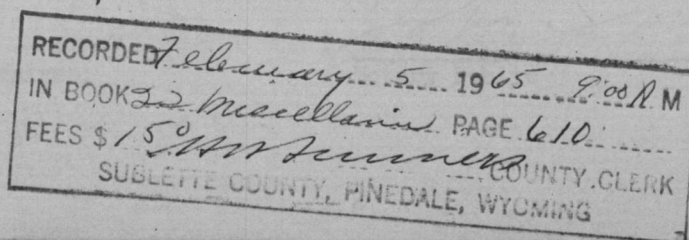 RECORDED February 5 1965 9:00 A M
IN BOOK 22 PAGE 610
FEES $ 1 50 COUNTY CLERK
SUBLETTE COUNTY, PINEDALE, WYOMING